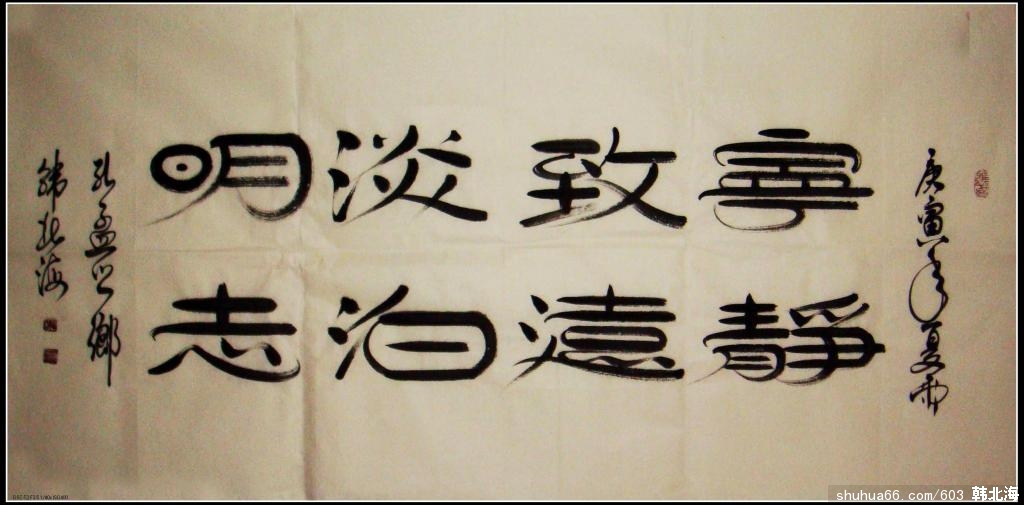 庚寅年夏雨
寧靜
致遠
淡泊
明志
孔孟之鄉
韩北海
shuhua66.com/603 韩北海